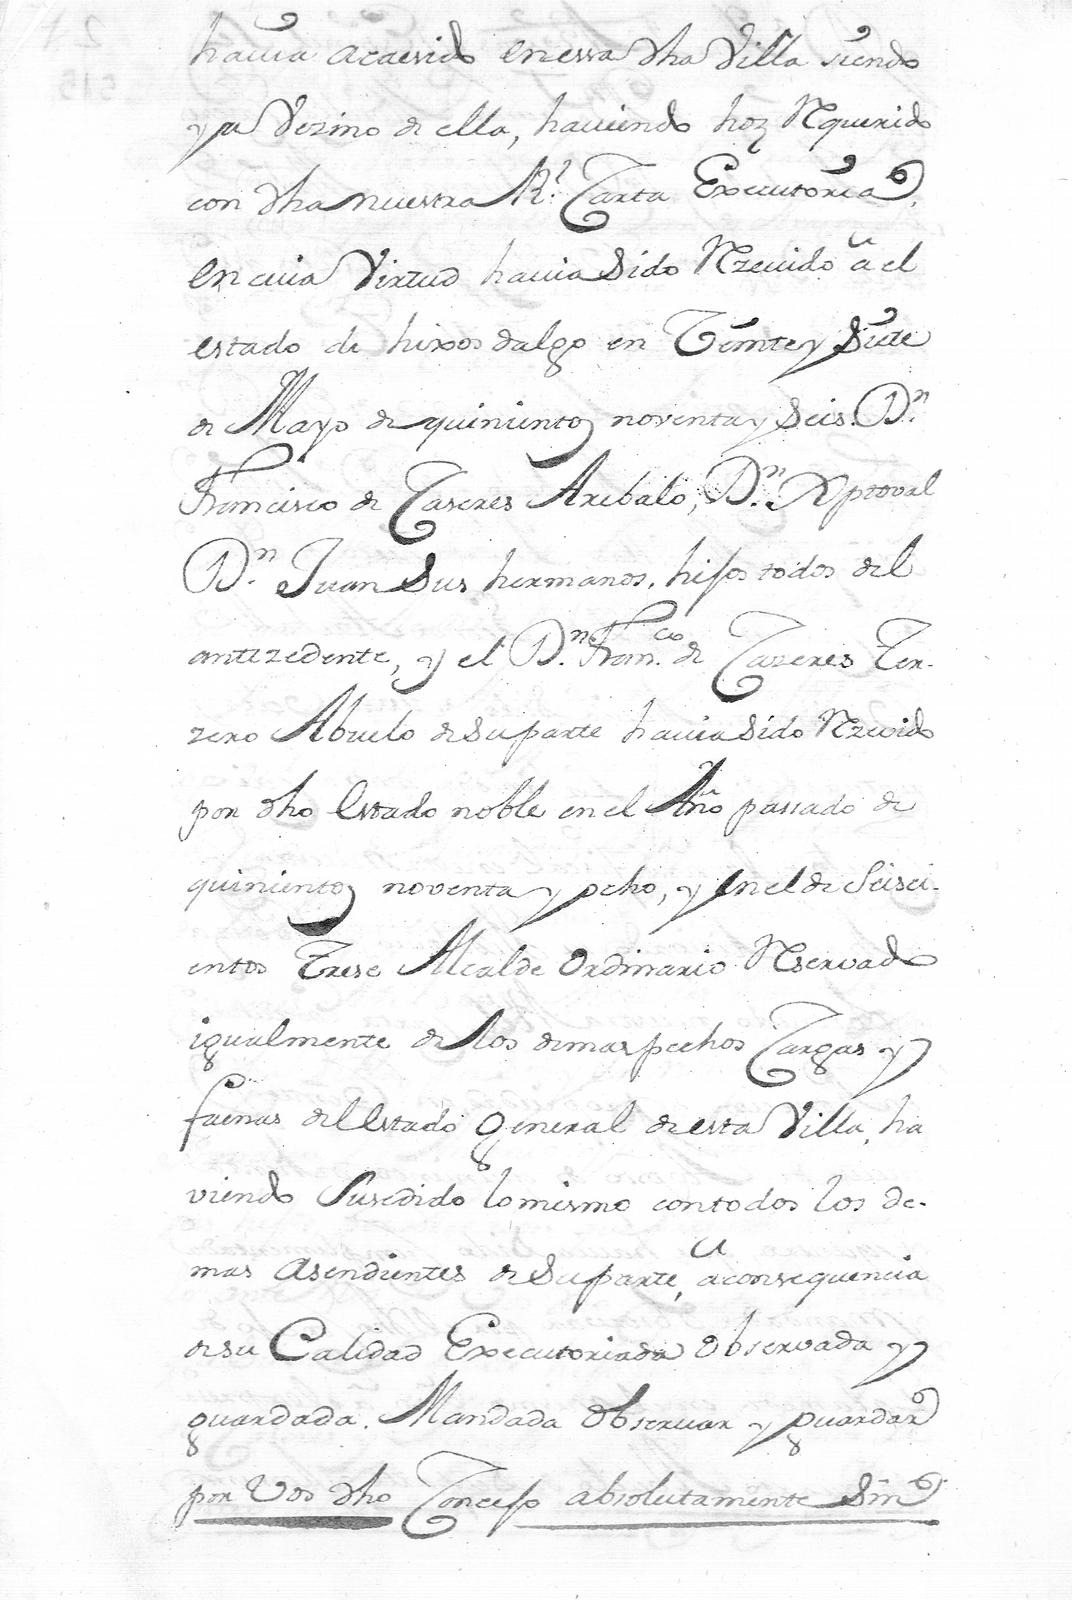 havia acaesido en essa dha Villa siendo
ya Vezino de ella, haviendo hoz Requerido
con dha nuestra Rl. Carta Executoria,
en cuia Virtud havia sido Rezevido a el
estado de hixos dalgo en Veinte y Siete
de Mayo de quinientos noventa y Seis. Dn.
Francisco de Caseres Arebalo, Dn. Xptoval
Dn. Juan Sus hermanos, hijos todos del
antezedente, y el Dn. Franco. de Cazeres Ter-
zero Abuelo de Su parte havia Sido Rezevido
por dho Estado noble en el Año passado de
quinientos noventa y ocho, y en el de Seisci-
entos Trese Alcalde Ordinario Reservado
igualmente de los demas pechos Cargas y
faenas del Estado General de esta Villa, ha
viendo Susedido lo mismo con todos los de-
mas Asendientes de Su parte, a consequencia
de su Calidad Executoriada Observada y
guardada. Mandada Observar y guardar
por Vos dho Consejo absolutamente Sin